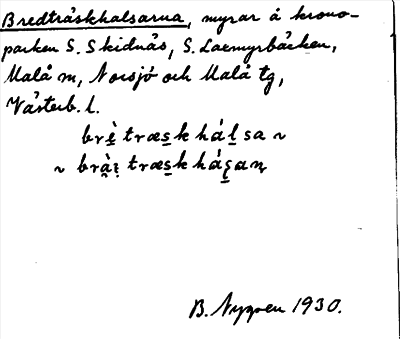 Bredträskhalsarna, myrar å krono-
parken S. Skidnäs, S. Larmyrbäcken,
Malå sn, Norsjö och Malå tg,
Västerb. l.
brè̱træs̱k há̱ḻsa ~
~ brà̤i̤træs̱k há
B. Nygren 1930.